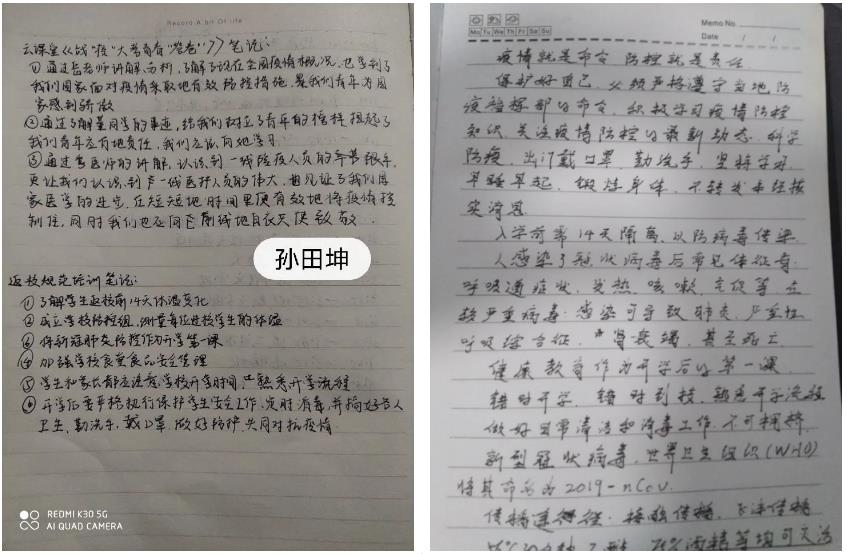 Record A bit Of Life
云课堂《"战"疫"大考青春"答卷"》笔记:
①通过岳老师讲解、分析,了解了现在全国疫情概况,也学到了
我们国家面对疫情采取地有效防控措施,是我们青年为国
家感到骄傲
②通过了解某同学的事迹,给我们树立了青年的榜样 担起了
我们青年应有地责任,我们应该向她学习.
③通过李医师的讲解,认识到一线防疫人员的辛苦艰辛,
更让我们认识到了一线医疗人员的伟大,也见证了我们国
家医学的进步,在短短地时间里便有效地将疫情控
制住,同时我们也应向白衣天使致敬.
孙田坤
返校规范培训笔记:
①了解学生返校前14天体温变化
②成立学校防控组,测量每位进校学生的体温
③将新冠肺炎防控作为开学第一课
④加强学校食堂食品安全管理
⑤学生和家长都应注意学校开学时间,熟悉开学流程
⑥开学后要严格执行保护学生安全工作,定时消毒,并搞好个人
卫生,勤洗手,戴口罩,做好防护,共同对抗疫情.
REDMI K30 5G
AI QUAD CAMERA
Memo No.
Mo Tu We Th Fr Sa Su
Date / /
疫情就是命令 防控就是责任
保护好自己,必须严格遵守当地防
疫指挥部的命令,积极学习疫情防控
知识,关注疫情防控的最新动态,科学
防疫,出门戴口罩,勤洗手,坚持学习,
早睡早起,锻炼身体,不转发未经核
实消息.
入学前需14天隔离,以防病毒传染.
人感染了冠状病毒后常见体征有:
呼吸道症状,发热,咳嗽,气促等,在
较严重病毒:感染可导致肺炎,严重性
呼吸综合征,肾衰竭,甚至死亡
健康教育作为开学后的第一课.
错时开学,错时到校,熟悉开学流程
做好日常清洁和消毒工作.不可拥挤.
新型冠状病毒,世界卫生组织(WHO)
将其命名为2019-nCoV.
传播途径:接触传播,飞沫传播
75%酒精等均可灭活